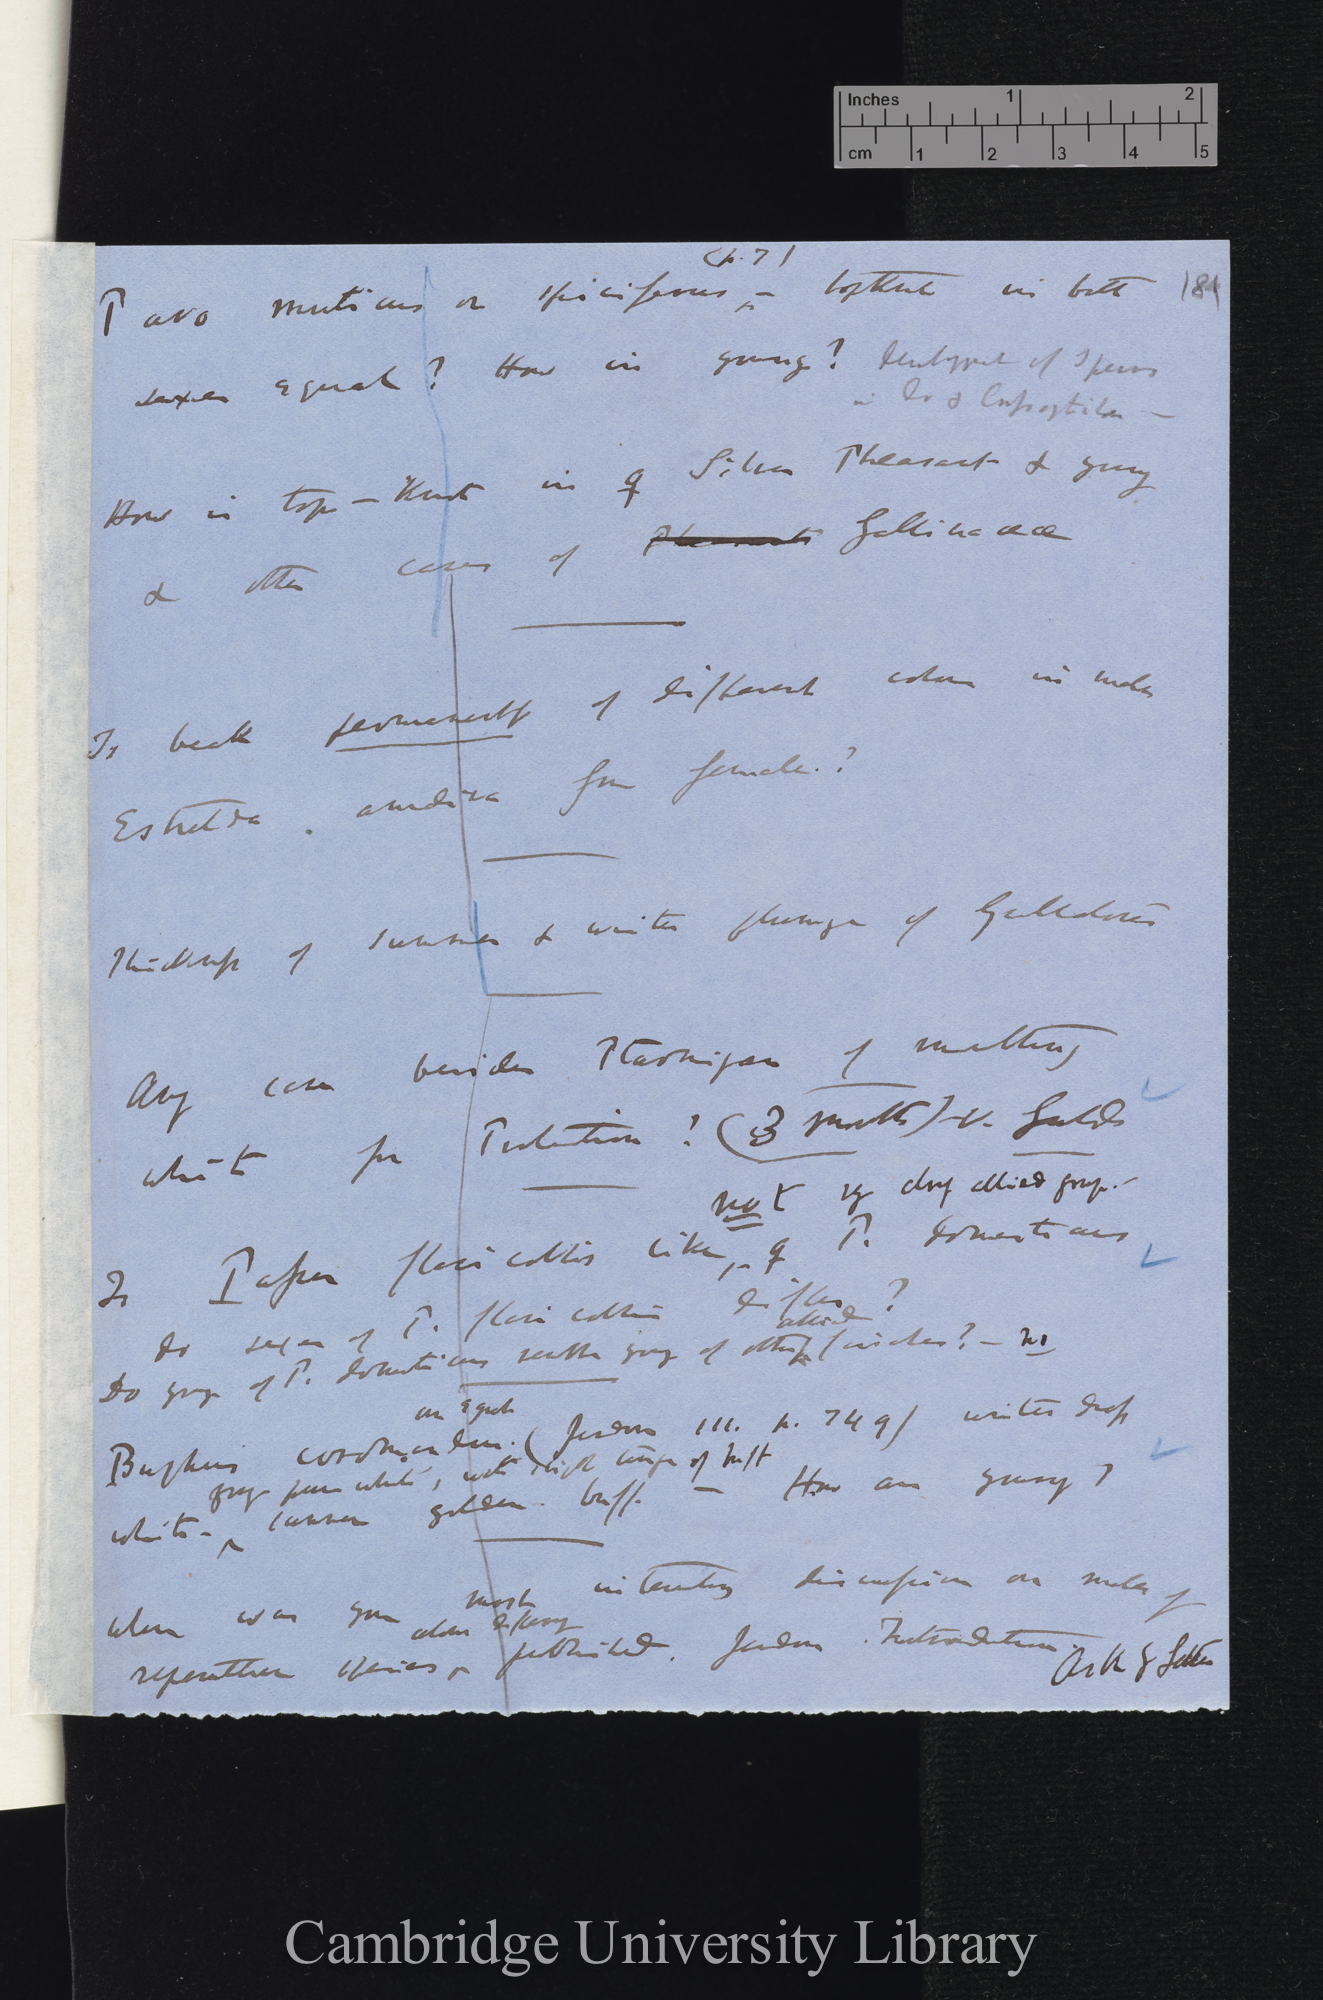 Inches 1 2
cm 1 2 3 4 5
(p. 7)
181
Pavo muticus or spiciferus – topknot in both
sexes equal? How in young? Developmt of Spurs
in do &
How is top-knot in ♀ Silver Pheasant & young
& other cases of Pheasants Gallinaceae
Is beak permanently of different colour in males
Estrelda . amadina from female.?
Thickness of summer & winter plumage of
Any case besides Ptarmigan of moulting
white for Protection? (3 moults) v. Gould
not yg allied group.–
Is Passer flavicollis like ♀ P. domesticus
Do sexes of P. flavicollis differ?
allied
Do young of P. domesticus resemble young of other finches? – No
an Egret
Buphus coromandus. (Jerdon III. p. 749) winter dress
young pure white, with slight tinge of buff
white – summer golden buff. – How are young?
When was your most interesting discussion on males of
alone differing
representative species published. Jerdon Introduction.
Ask Letter
Cambridge University Library